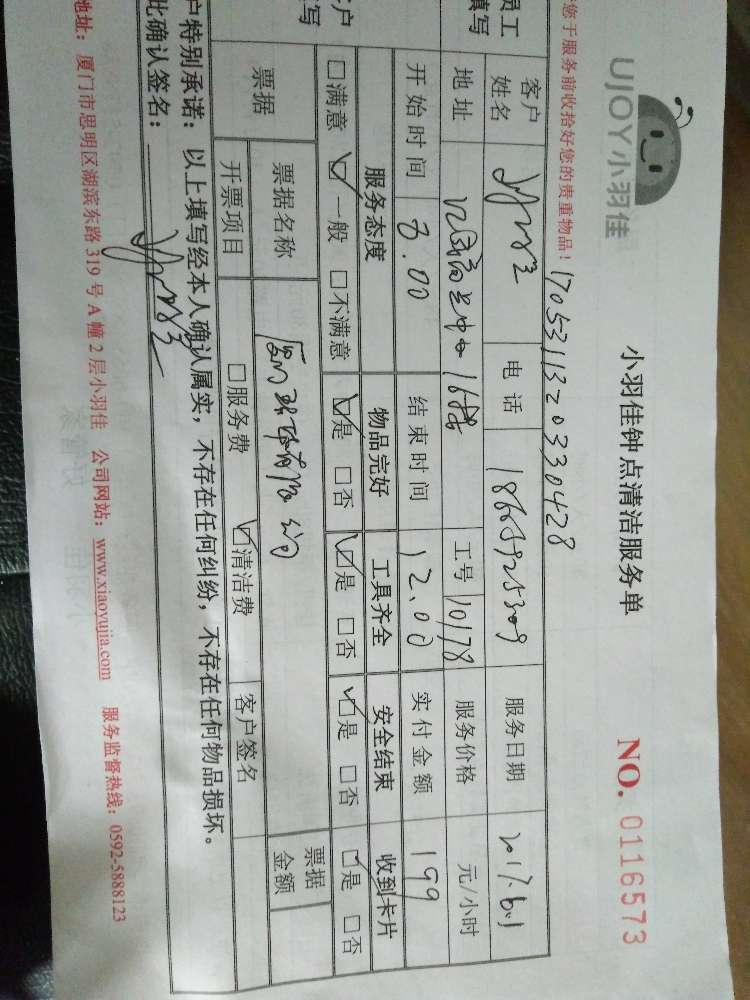 UJOY小羽佳
小羽佳钟点清洁服务单
NO. 0116573
您于服务前收拾好您的贵重物品！
1705311320330428
员工 填写
客户姓名 电话 服务日期
地址 工号 10178 服务价格 元/小时
开始时间 8.00 结束时间 12.00 实付金额 199
服务态度 物品完好 工具齐全 安全结束 收到卡片
□满意 ☑一般 □不满意 ☑是 □否 ☑是 □否 ☑是 □否 ☑是 □否
票据 票据名称 票据金额
开票项目 □服务费 ☑清洁费 客户签名
户特别承诺：以上填写经本人确认属实，不存在任何纠纷，不存在任何物品损坏。
此确认签名：
地址：厦门市思明区湖滨东路 319 号 A 幢 2 层小羽佳 公司网站：www.xiaoyujia.com 服务监督热线：0592-5888123